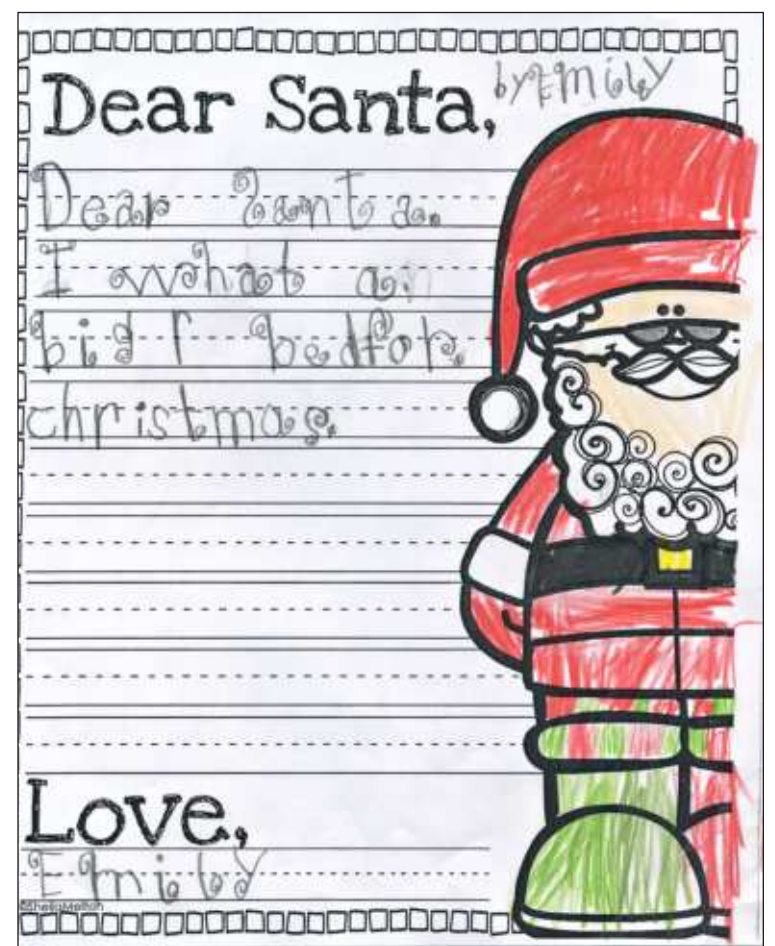 Dear Santa,
by Emily
Dear Santa.
I what a.
bid r bedfor.
christmas.
Love,
Emily
©SheilaMelton